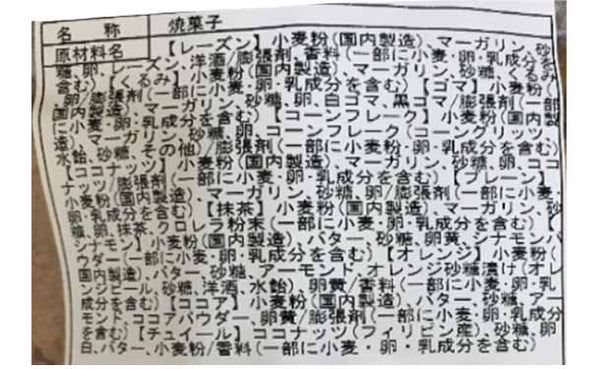 名称 焼菓子
原材料名 【レーズン】小麦粉(国内製造)、マーガリン、砂
糖、卵、レーズン、洋酒/膨張剤、香料(一部に小麦・卵・乳成分を
含む)【くるみ】小麦粉(国内製造)、マーガリン、砂糖、くるみ
、卵/膨張剤(一部に小麦・卵・乳成分を含む)【ゴマ】小麦粉(
国内製造)、マーガリン、砂糖、卵、白ゴマ、黒ゴマ/膨張剤(一部
に小麦・卵・乳成分を含む)【コーンフレーク】小麦粉(国内製
造)、マーガリン、砂糖、卵、コーンフレーク(コーングリッツ、
水飴、砂糖、その他)/膨張剤(一部に小麦粉・卵・乳成分を含む)
【ココナッツ】小麦粉(国内製造)、マーガリン、砂糖、卵、ココ
ナッツ/膨張剤(一部に小麦・卵・乳成分を含む)【プレーン】
小麦粉(国内製造)、マーガリン、砂糖、卵/膨張剤(一部に小麦・
卵・乳成分を含む)【抹茶】小麦粉(国内製造)、マーガリン、砂
糖、卵、抹茶、クロレラ粉末(一部に小麦・卵・乳成分を含む)【
シナモン】小麦粉(国内製造)、バター、砂糖、卵黄、シナモンパ
ウダー(一部に小麦・卵・乳成分を含む)【オレンジ】小麦粉(
国内製造)、バター、砂糖、アーモンド、オレンジ砂糖漬け(オレ
ンジピール、砂糖、洋酒、水飴)、卵黄/香料(一部に小麦・卵・乳
成分を含む)【ココア】小麦粉(国内製造)、バター、砂糖、アー
モンド、ココアパウダー、卵黄/膨張剤(一部に小麦・卵・乳成分
を含む)【チュイール】ココナッツ(フィリピン産)、砂糖、卵
白、バター、小麦粉/香料(一部に小麦・卵・乳成分を含む)